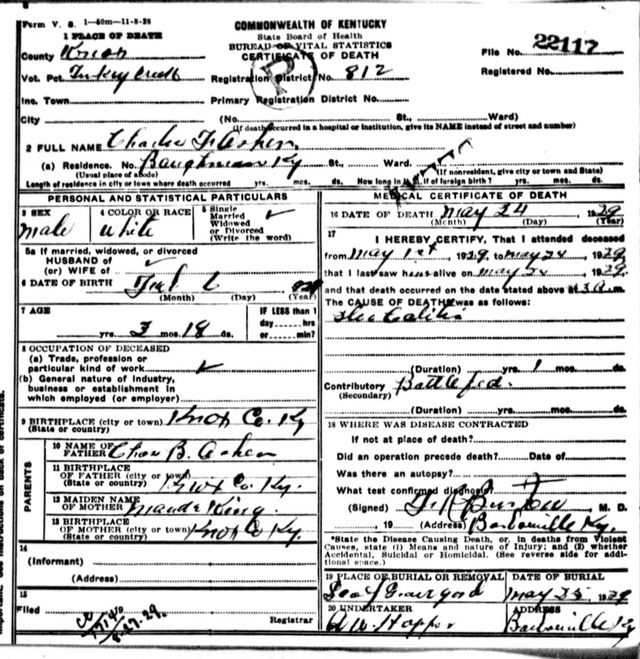 Form V. S. 1-50m-11-8-28
COMMONWEALTH OF KENTUCKY
State Board of Health
BUREAU OF VITAL STATISTICS
CERTIFICATE OF DEATH
1 PLACE OF DEATH
County Knox
File No. 22117
Vot. Pct. Turkey Creek
Registration District No. 812
Registered No.
Inc. Town
Primary Registration District No.
City (No. St., Ward)
(If death occurred in a hospital or institution, give its NAME instead of street and number)
2 FULL NAME Charlie F. Asher
(a) Residence. No. Baughman Ky St., Ward.
(Usual place of abode) (If nonresident, give city or town and State)
Length of residence in city or town where death occurred yrs. mos. ds. How long in U.S., if of foreign birth? yrs. mos. ds.
PERSONAL AND STATISTICAL PARTICULARS
3 SEX
male
4 COLOR OR RACE
white
5 Single
Married
Widowed
or Divorced
(Write the word)
5a If married, widowed, or divorced
HUSBAND of
(or) WIFE of
6 DATE OF BIRTH Feb 6 1929
(Month) (Day) (Year)
7 AGE
yrs. 3 mos. 18 ds.
IF LESS than 1
day hrs
or min?
8 OCCUPATION OF DECEASED
(a) Trade, profession or
particular kind of work
(b) General nature of industry,
business or establishment in
which employed (or employer)
9 BIRTHPLACE (city or town) Knox Co. Ky
(State or country)
PARENTS
10 NAME OF
FATHER Chas B. Asher
11 BIRTHPLACE
OF FATHER (city or town)
(State or country) Knox Co. Ky.
12 MAIDEN NAME
OF MOTHER Maude King
13 BIRTHPLACE
OF MOTHER (city or town)
(State or country) Knox Co Ky.
14
(Informant)
(Address)
15
Filed
Registrar
MEDICAL CERTIFICATE OF DEATH
16 DATE OF DEATH May 24 1929
(Month) (Day) (Year)
17
I HEREBY CERTIFY, That I attended deceased
from May 1st, 1929, to May 24, 1929
that I last saw h alive on May 24, 1929,
and that death occurred on the date stated above at 3 a.m.
The CAUSE OF DEATH* was as follows:
Ileo Colitis
(Duration) yrs. 1 mos. ds.
Contributory Bottle fed.
(Secondary)
(Duration) yrs. mos. ds.
18 WHERE WAS DISEASE CONTRACTED
If not at place of death?
Did an operation precede death? Date of
Was there an autopsy?
What test confirmed diagnosis?
(Signed) M. D.
, 19 (Address) Barbourville Ky.
*State the Disease Causing Death, or, in deaths from Violent
Causes, state (1) Means and nature of Injury; and (2) whether
Accidental, Suicidal or Homicidal. (See reverse side for addi-
tional space.)
19 PLACE OF BURIAL OR REMOVAL
Graveyard
DATE OF BURIAL
May 25 1929
20 UNDERTAKER
A.W. Hopper
ADDRESS
Barbourville Ky